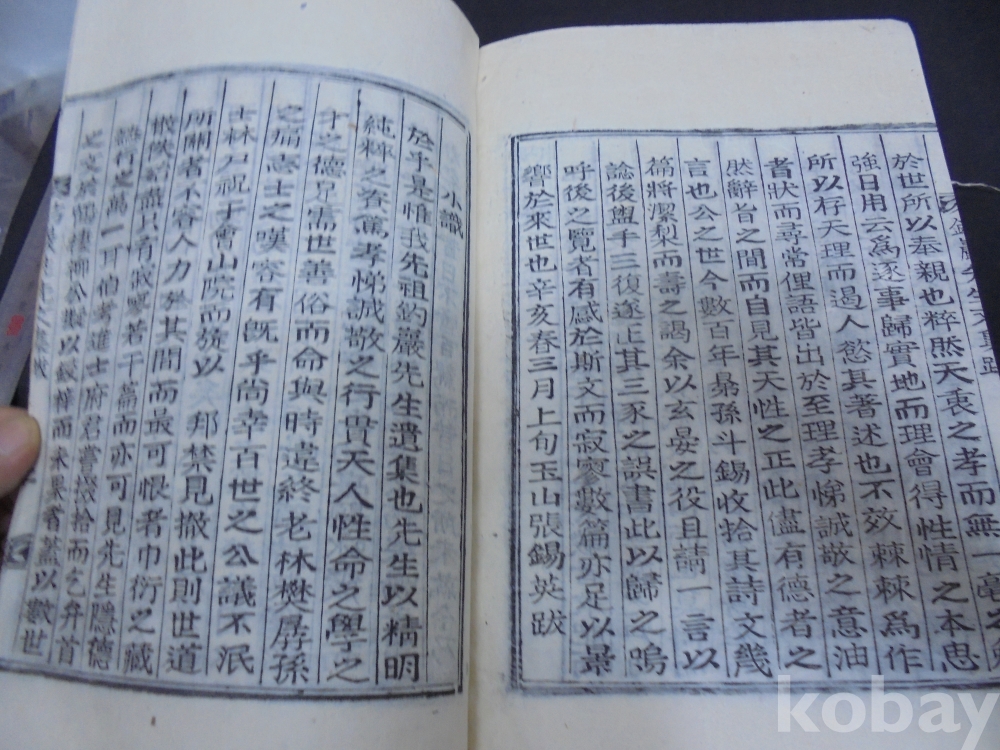 於世所以奉親也粹然天衷之孝而無一毫之
強日用云爲逐事歸實地而理會得性情之本思
所以存天理而遏人慾其著述也不效棘棘爲作
者狀而尋常俚語皆出於至理孝悌誠敬之意油
然辭旨之間而自見其天性之正此儘有德者之
言也公之世今數百年曷孫斗錫收拾其詩文幾
篇將潔梨而壽之謁余以玄晏之役且請一言以
諗後盥手三復遂正其三豕之誤書此以歸之嗚
呼後之覽者有感於斯文而寂寥數篇亦足以景
響於來世也辛亥春三月上旬玉山張錫英跋
小識
於乎是惟我先祖釣巖先生遺集也先生以精明
純粹之資篤孝悌誠敬之行貫天人性命之學之
才之德見需世善俗而命與時違終老林樊孱孫
之痛志士之嘆容有旣乎尚幸百世之公議不泯
士林尸祝于會山院而旋以 邦禁見撤此則世道
所關者不容人力於其間而最可恨者巾衍之藏
散佚殆盡只有寂寥若干篇而亦可見先生隱德
懿行之萬一耳伯考進士府君嘗掇拾而乞弁首
之文於 以鋟梓而未果者蓋以數世